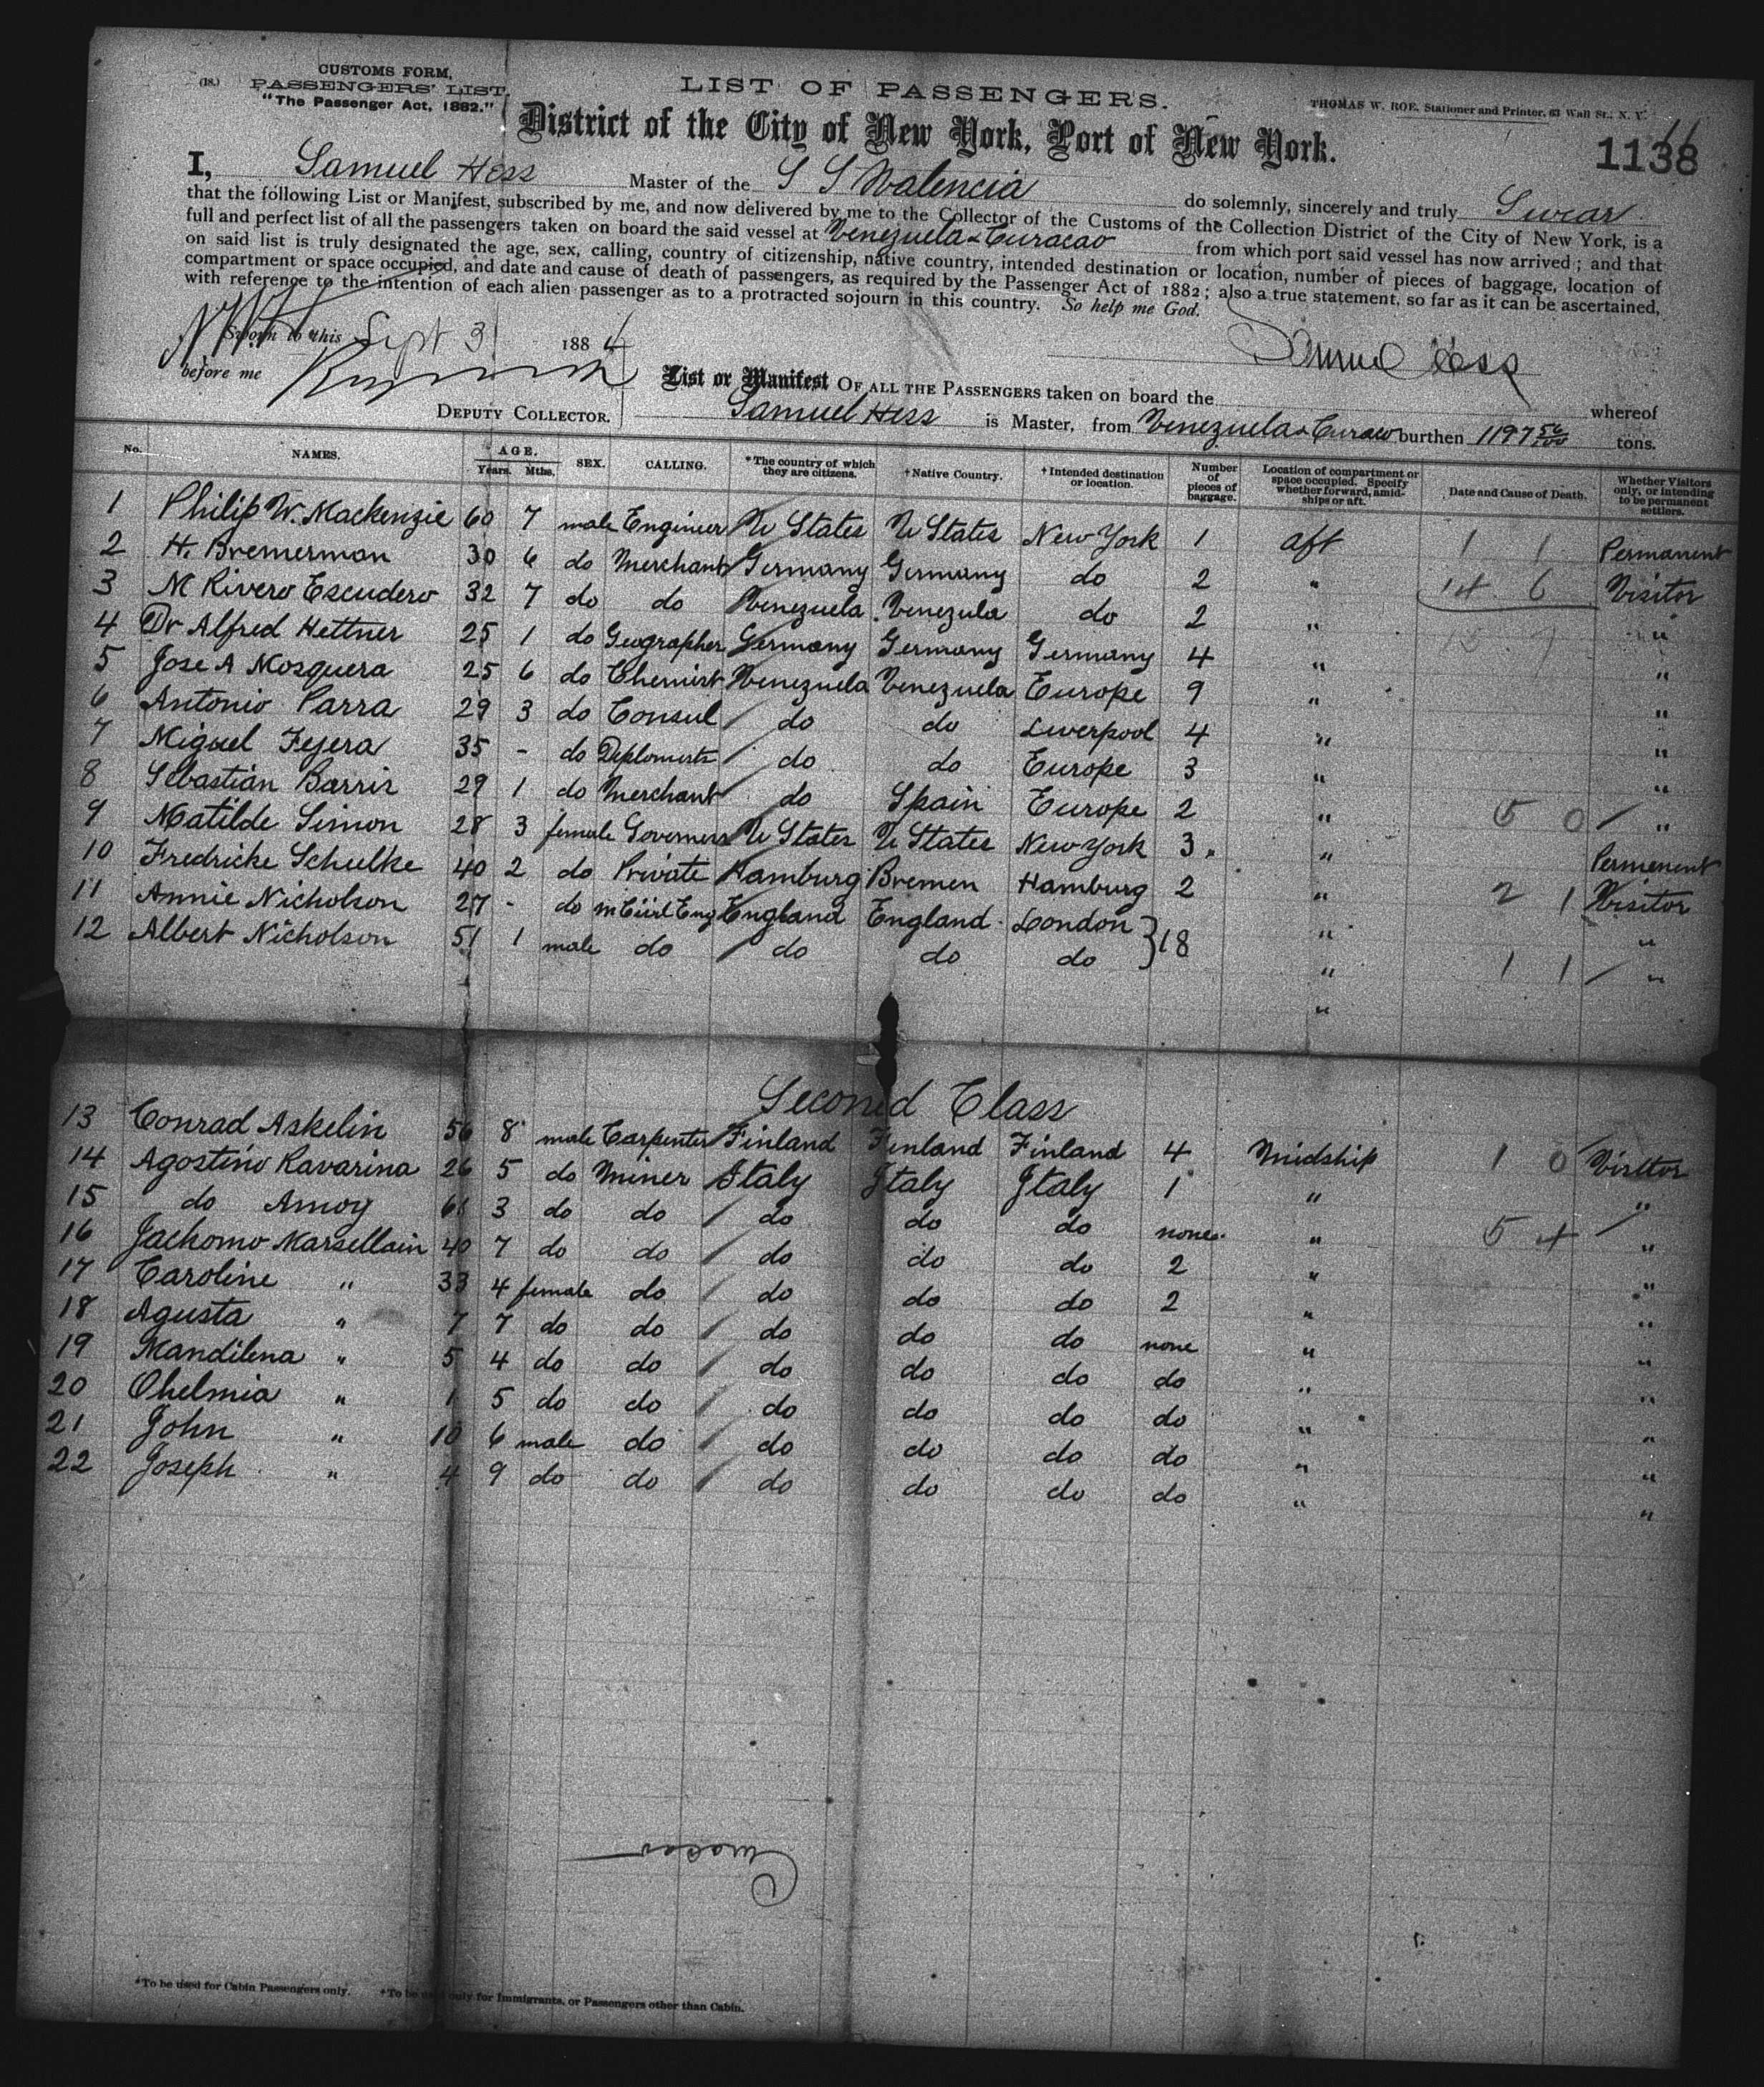 (18.) CUSTOMS FORM,
PASSENGERS' LIST.
"The Passenger Act, 1882."
LIST OF PASSENGERS.
THOMAS W. ROE, Stationer and Printer, 63 Wall St., N. Y.
District of the City of New York, Port of New York.
11
1138
I, Samuel Hess Master of the S S Valencia do solemnly, sincerely and truly Swear
that the following List or Manifest, subscribed by me, and now delivered by me to the Collector of the Customs of the Collection District of the City of New York, is a
full and perfect list of all the passengers taken on board the said vessel at Venezuela & Curacao from which port said vessel has now arrived; and that
on said list is truly designated the age, sex, calling, country of citizenship, native country, intended destination or location, number of pieces of baggage, location of
compartment or space occupied, and date and cause of death of passengers, as required by the Passenger Act of 1882; also a true statement, so far as it can be ascertained,
with reference to the intention of each alien passenger as to a protracted sojourn in this country. So help me God.
Sworn to this Sept 3 1884
Samuel Hess
before me
DEPUTY COLLECTOR.
List or Manifest OF ALL THE PASSENGERS taken on board the whereof
Samuel Hess is Master, from Venezuela & Curacao burthen 1197 56/100 tons.
No. NAMES. AGE. Years. Mths. SEX. CALLING. *The country of which they are citizens. †Native Country. †Intended destination or location. Number of pieces of baggage. Location of compartment or space occupied. Specify whether forward, amidships or aft. Date and Cause of Death. Whether Visitors only, or intending to be permanent settlers.
1 Philip W. Mackenzie 60 7 male Engineer U States U States New York 1 aft 1 1 Permanent
2 H. Bremerman 30 6 do Merchant Germany Germany do 2 " 14 6 Visitor
3 M Rivero Escudero 32 7 do do Venezuela Venezula do 2 " "
4 Dr Alfred Hettner 25 1 do Geographer Germany Germany Germany 4 " "
5 Jose A Mosquera 25 6 do Chemist Venezuela Venezuela Europe 9 " "
6 Antonio Parra 29 3 do Consul do do Liverpool 4 " "
7 Miguel Tejera 35 - do Deplomist do do Europe 3 " "
8 Sebastian Barris 29 1 do Merchant do Spain Europe 2 " 5 0 "
9 Matilde Simon 28 3 female Governess U States U States New York 3 " Permenent
10 Fredricke Schulke 40 2 do Private Hamburg Bremen Hamburg 2 " 2 1 Visitor
11 Annie Nicholson 27 - do England England London } 18 " "
12 Albert Nicholson 51 1 male do do do do " 1 1 "
"
Second Class
13 Conrad Askelin 56 8 male Carpenter Finland Finland Finland 4 Midship 1 0 Visitor
14 Agostino Ravarina 26 5 do Miner Italy Italy Italy 1 " "
15 do Amoy 61 3 do do do do do none " 5 4 "
16 Jachomo Marsellain 40 7 do do do do do 2 " "
17 Caroline " 33 4 female do do do do 2 " "
18 Agusta " 7 7 do do do do do none " "
19 Mandilena " 5 4 do do do do do do " "
20 Ohelmia " 1 5 do do do do do do " "
21 John " 10 6 male do do do do do " "
22 Joseph " 4 9 do do do do do do " "
Curacao
*To be used for Cabin Passengers only. †To be used only for Immigrants, or Passengers other than Cabin.